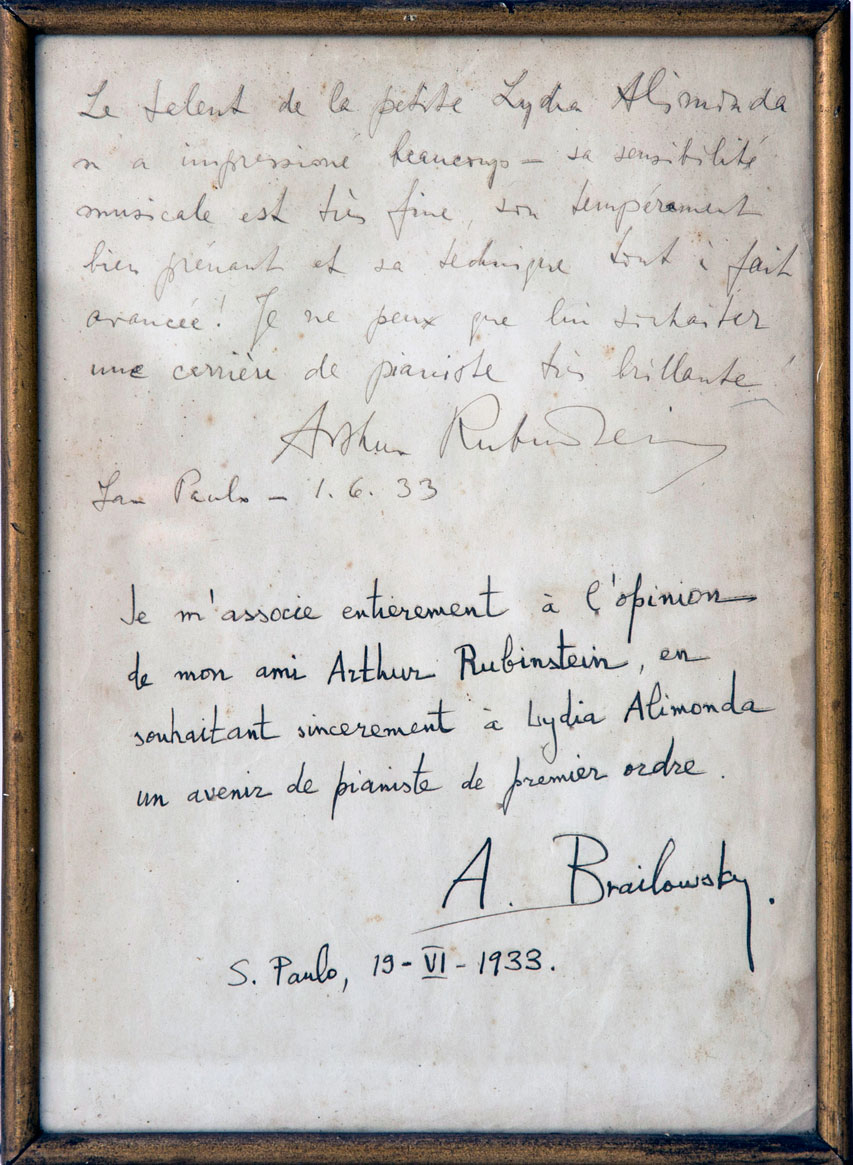 Le talent de la petite Lydia Alimonda
m'a impressioné beaucoup – sa sensibilité
musicale est très fine, son tempérament
bien prenant et sa technique tout à fait
avancée! Je ne peux que lui souhaiter
une carrière de pianiste très brillante!
Arthur Rubinstein
Sao Paulo – 1.6.33
Je m'associe entièrement à l'opinion
de mon ami Arthur Rubinstein, en
souhaitant sincerement à Lydia Alimonda
un avenir de pianiste de premier ordre.
A. Brailowsky.
S. Paulo, 19-VI-1933.